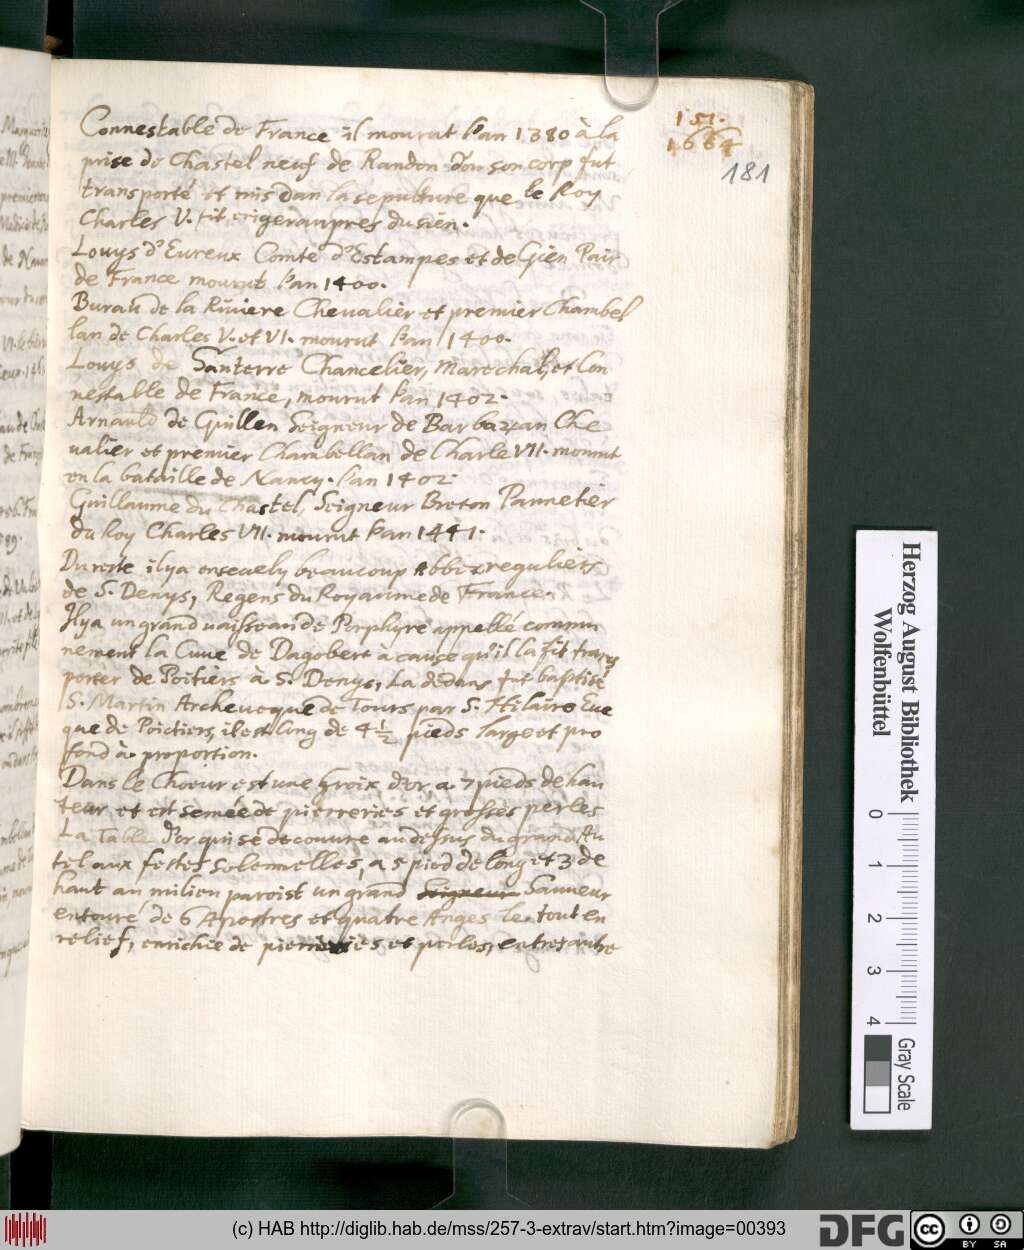 151.
1664
181
Connestable de France il mourut l'an 1380 à la
prise de Chastel neuf de Randon d'ou son corp fut
transporté et mis dan la sepulture que le Roy
Charles V. fit eriger aupres du sien.
Louys d'Evreux Comte d'Estampes et de Gien Pair
de France mourut l'an 1400.
Bureau de la Riviere Chevalier et premier Chambel
lan de Charles V. et VI. mourut l'an 1400.
Louys de Santerre Chancelier, Marechal, et Con
nestable de France, mourut l'an 1402.
Arnauld de Guillen Seigneur de Barbazan Che
valier et premier Chambellan de Charle VII. mourut
en la bataille de Nancy. l'an 1402.
Guillaume du Chastel, Seigneur Breton Pannetier
du Roy Charles VII. mourut l'an 1441.
Du reste il y a ensevely beaucoup Abbez reguliers
de S. Denys, Regens du Royaume de France.
Il y a un grand vaisseau de Porphyre appellé commu
nement la Cuve de Dagobert à cause qu'il la fit trans
porter de Poitiers à S. Denys, La dedans fut baptisé
S. Martin Archeveque de Tours par S. Hilaire Eve
que de Poictiers, il est long de 4 1/2 pieds large et pro
fond à proportion.
Dans le Choeur est une Croix d'or, a 7 pieds de hau
teur et est semée de pierreries et grosses perles
La Table d'or qui se decouvre au dessus du grand Au
tel aux festes solemnelles, a 5 pied de long et 3 de
haut au milieu paroist un grand Seigneur Sauveur
entouré de 6 Apostres et quatre Anges le tout en
relief, enrichie de pierreries et perles, entre autre
Herzog August Bibliothek
Wolfenbüttel
0 1 2 3 4
Gray Scale
(c) HAB http://diglib.hab.de/mss/257-3-extrav/start.htm?image=00393
DFG
cc BY SA